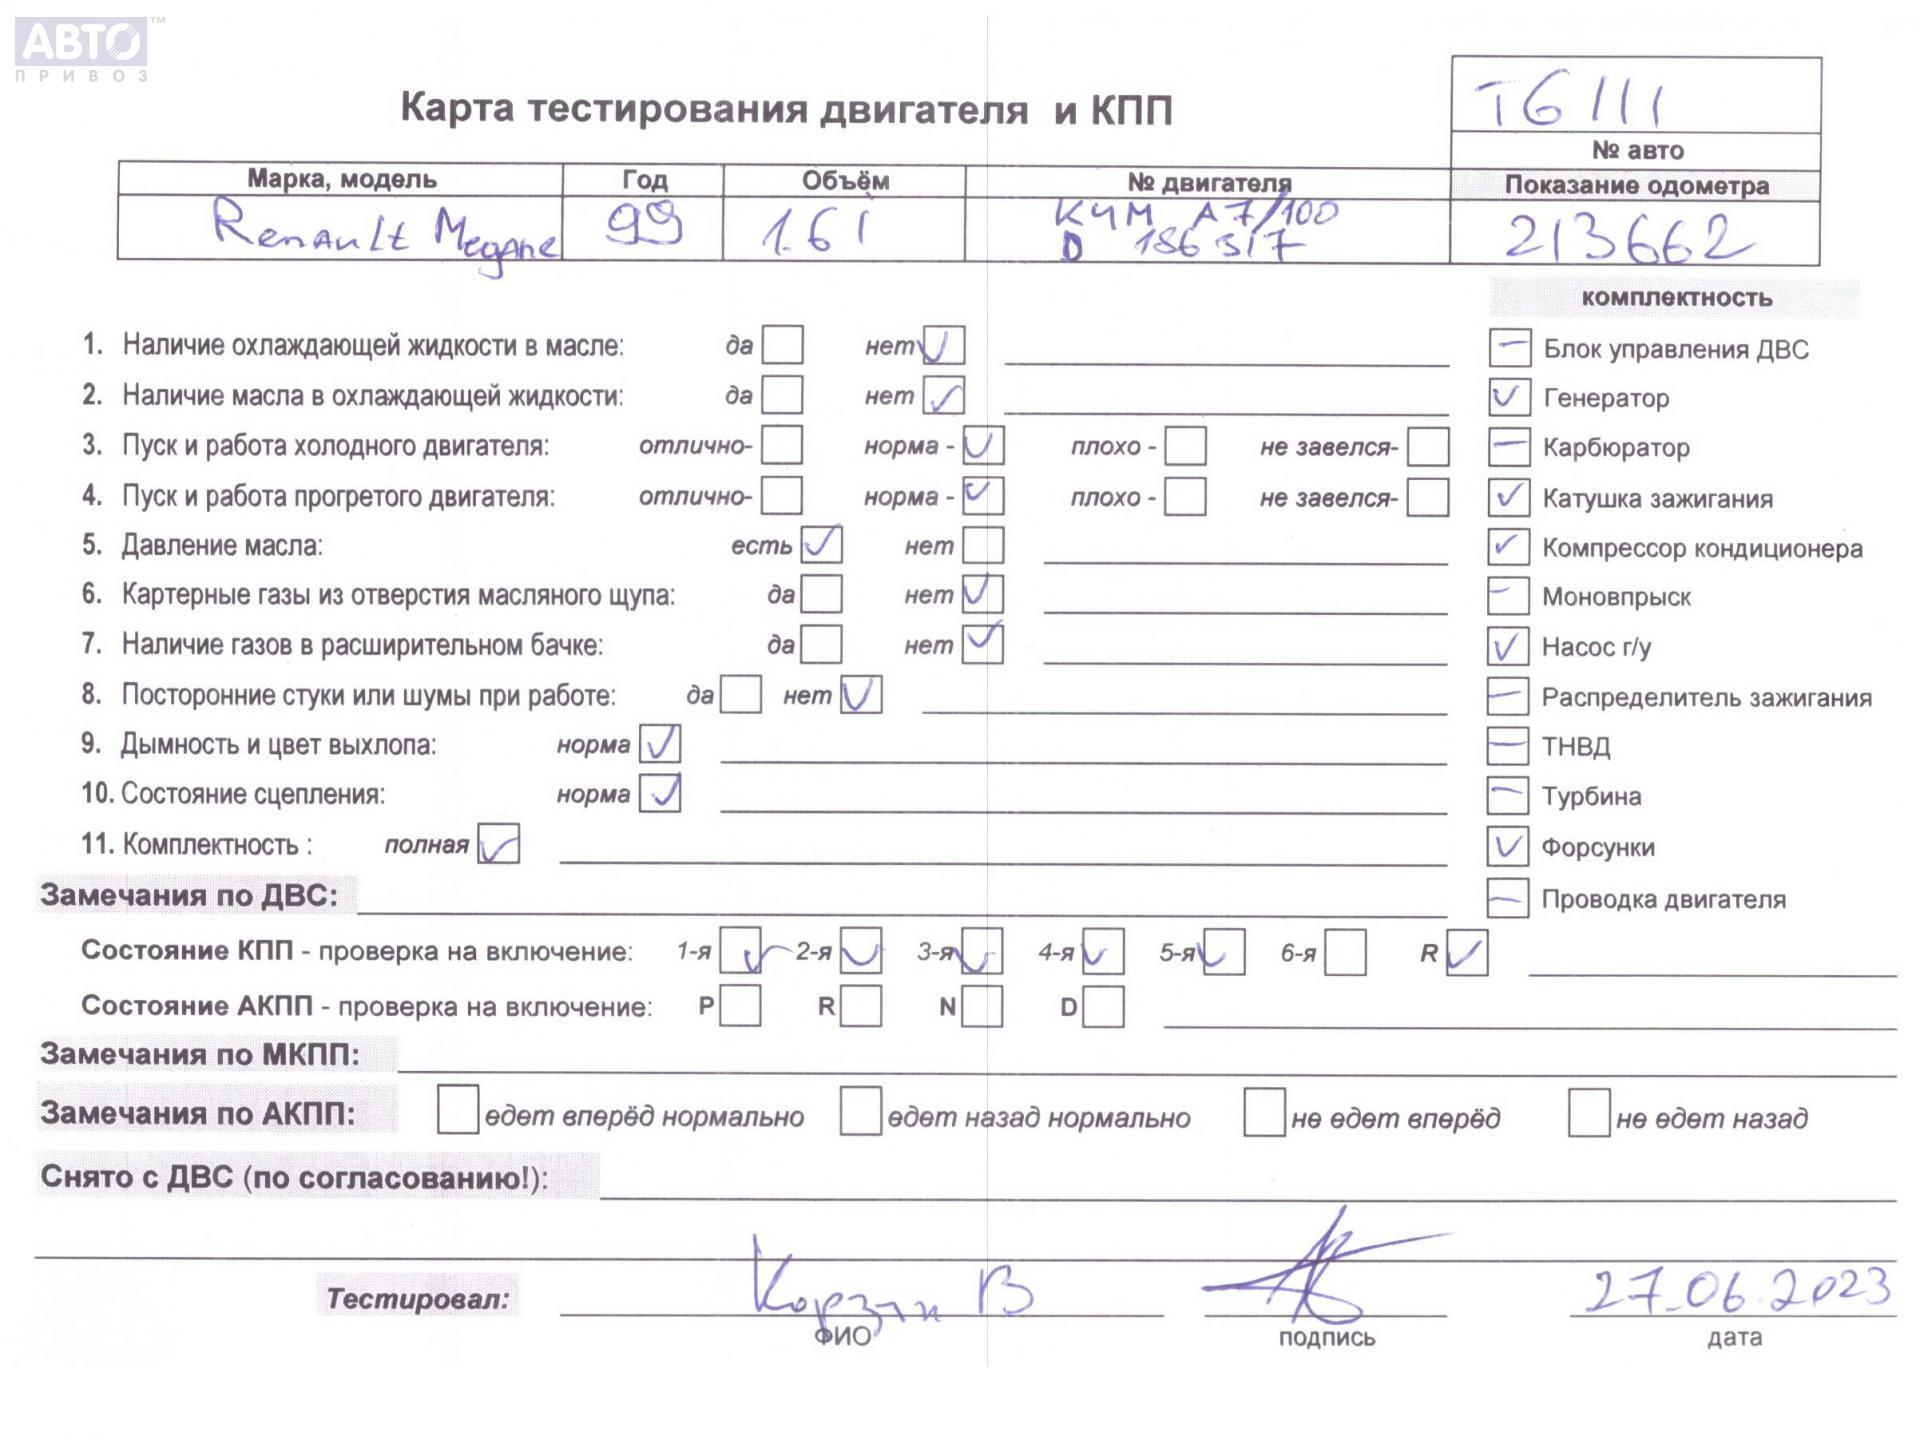 АВТО™
ПРИВОЗ
Карта тестирования двигателя и КПП
T6111
№ авто
Марка, модель Год Объём № двигателя Показание одометра
Renault Megane 99 1.6i K4M A7/100 213662
D 186317
комплектность
1. Наличие охлаждающей жидкости в масле: да нет ✓
Блок управления ДВС
2. Наличие масла в охлаждающей жидкости: да нет ✓
✓ Генератор
3. Пуск и работа холодного двигателя: отлично- норма - ✓ плохо - не завелся-
Карбюратор
4. Пуск и работа прогретого двигателя: отлично- норма - ✓ плохо - не завелся-
✓ Катушка зажигания
5. Давление масла: есть ✓ нет
✓ Компрессор кондиционера
6. Картерные газы из отверстия масляного щупа: да нет ✓
Моновпрыск
7. Наличие газов в расширительном бачке: да нет ✓
✓ Насос г/у
8. Посторонние стуки или шумы при работе: да нет ✓
Распределитель зажигания
9. Дымность и цвет выхлопа: норма ✓
ТНВД
10. Состояние сцепления: норма ✓
Турбина
11. Комплектность : полная ✓
✓ Форсунки
Замечания по ДВС:
Проводка двигателя
Состояние КПП - проверка на включение: 1-я ✓ 2-я ✓ 3-я ✓ 4-я ✓ 5-я ✓ 6-я R ✓
Состояние АКПП - проверка на включение: P R N D
Замечания по МКПП:
Замечания по АКПП: едет вперёд нормально едет назад нормально не едет вперёд не едет назад
Снято с ДВС (по согласованию!):
Тестировал: Корзун В 27.06.2023
ФИО подпись дата